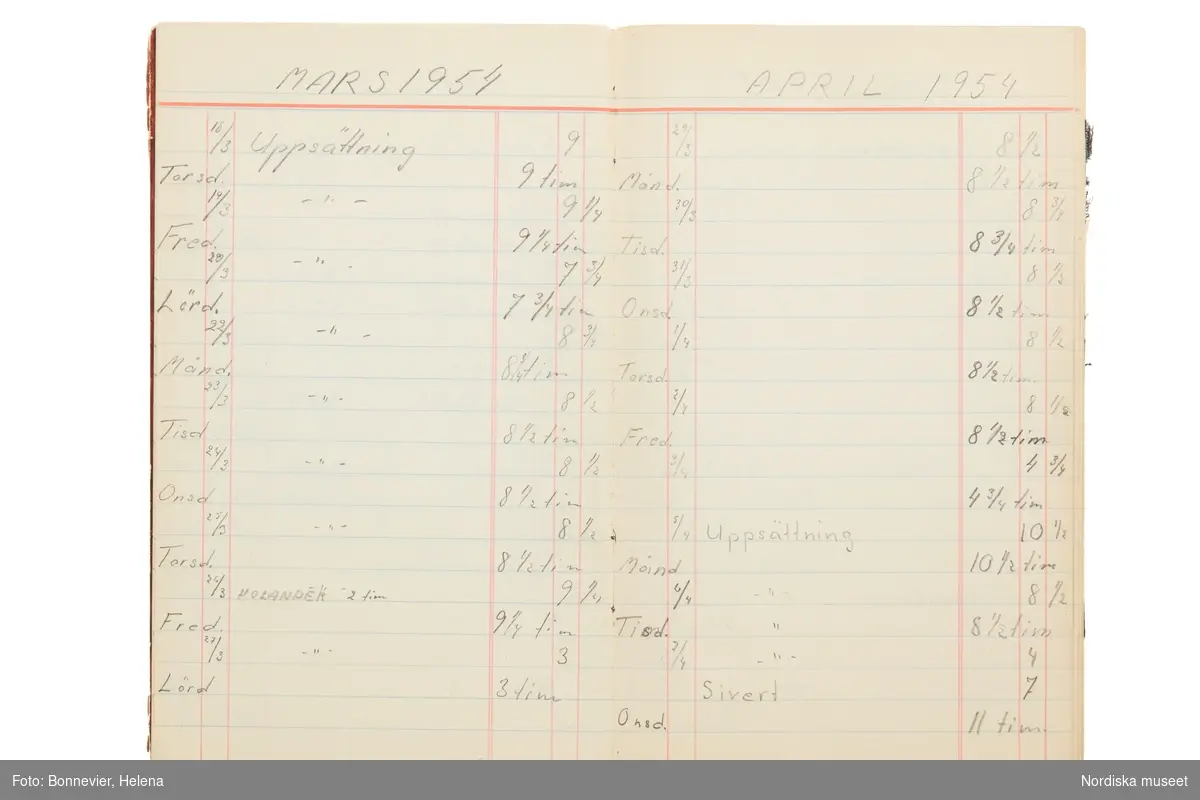 MARS 1954
18/3 Uppsättning 9
Torsd. 9 tim
19/3 - " - 9 1/4
Fred. 9 1/4 tim
20/3 - " - 7 3/4
Lörd. 7 3/4 tim
22/3 - " - 8 3/4
Månd. 8 3/4 tim
23/3 - " - 8 1/2
Tisd 8 1/2 tim
24/3 - " - 8 1/2
Onsd 8 1/2 tim
25/3 - " - 8 1/2
Torsd. 8 1/2 tim
26/3 2 tim 9 1/4
Fred. 9 1/4 tim
27/3 - " - 3
Lörd 3 tim
APRIL 1954
29/3 8 1/2
Månd. 8 1/2 tim
30/3 8 3/4
Tisd. 8 3/4 tim
31/3 8 1/2
Onsd 8 1/2 tim
1/4 8 1/2
Torsd. 8 1/2 tim.
2/4 8 1/2
Fred. 8 1/2 tim
3/4 4 3/4
4 3/4 tim
5/4 Uppsättning 10 1/2
Månd 10 1/2 tim
6/4 - " - 8 1/2
Tisd. " 8 1/2 tim
7/4 - " - 4
Sivert 7
Onsd. 11 tim.
Foto: Bonnevier, Helena
Nordiska museet